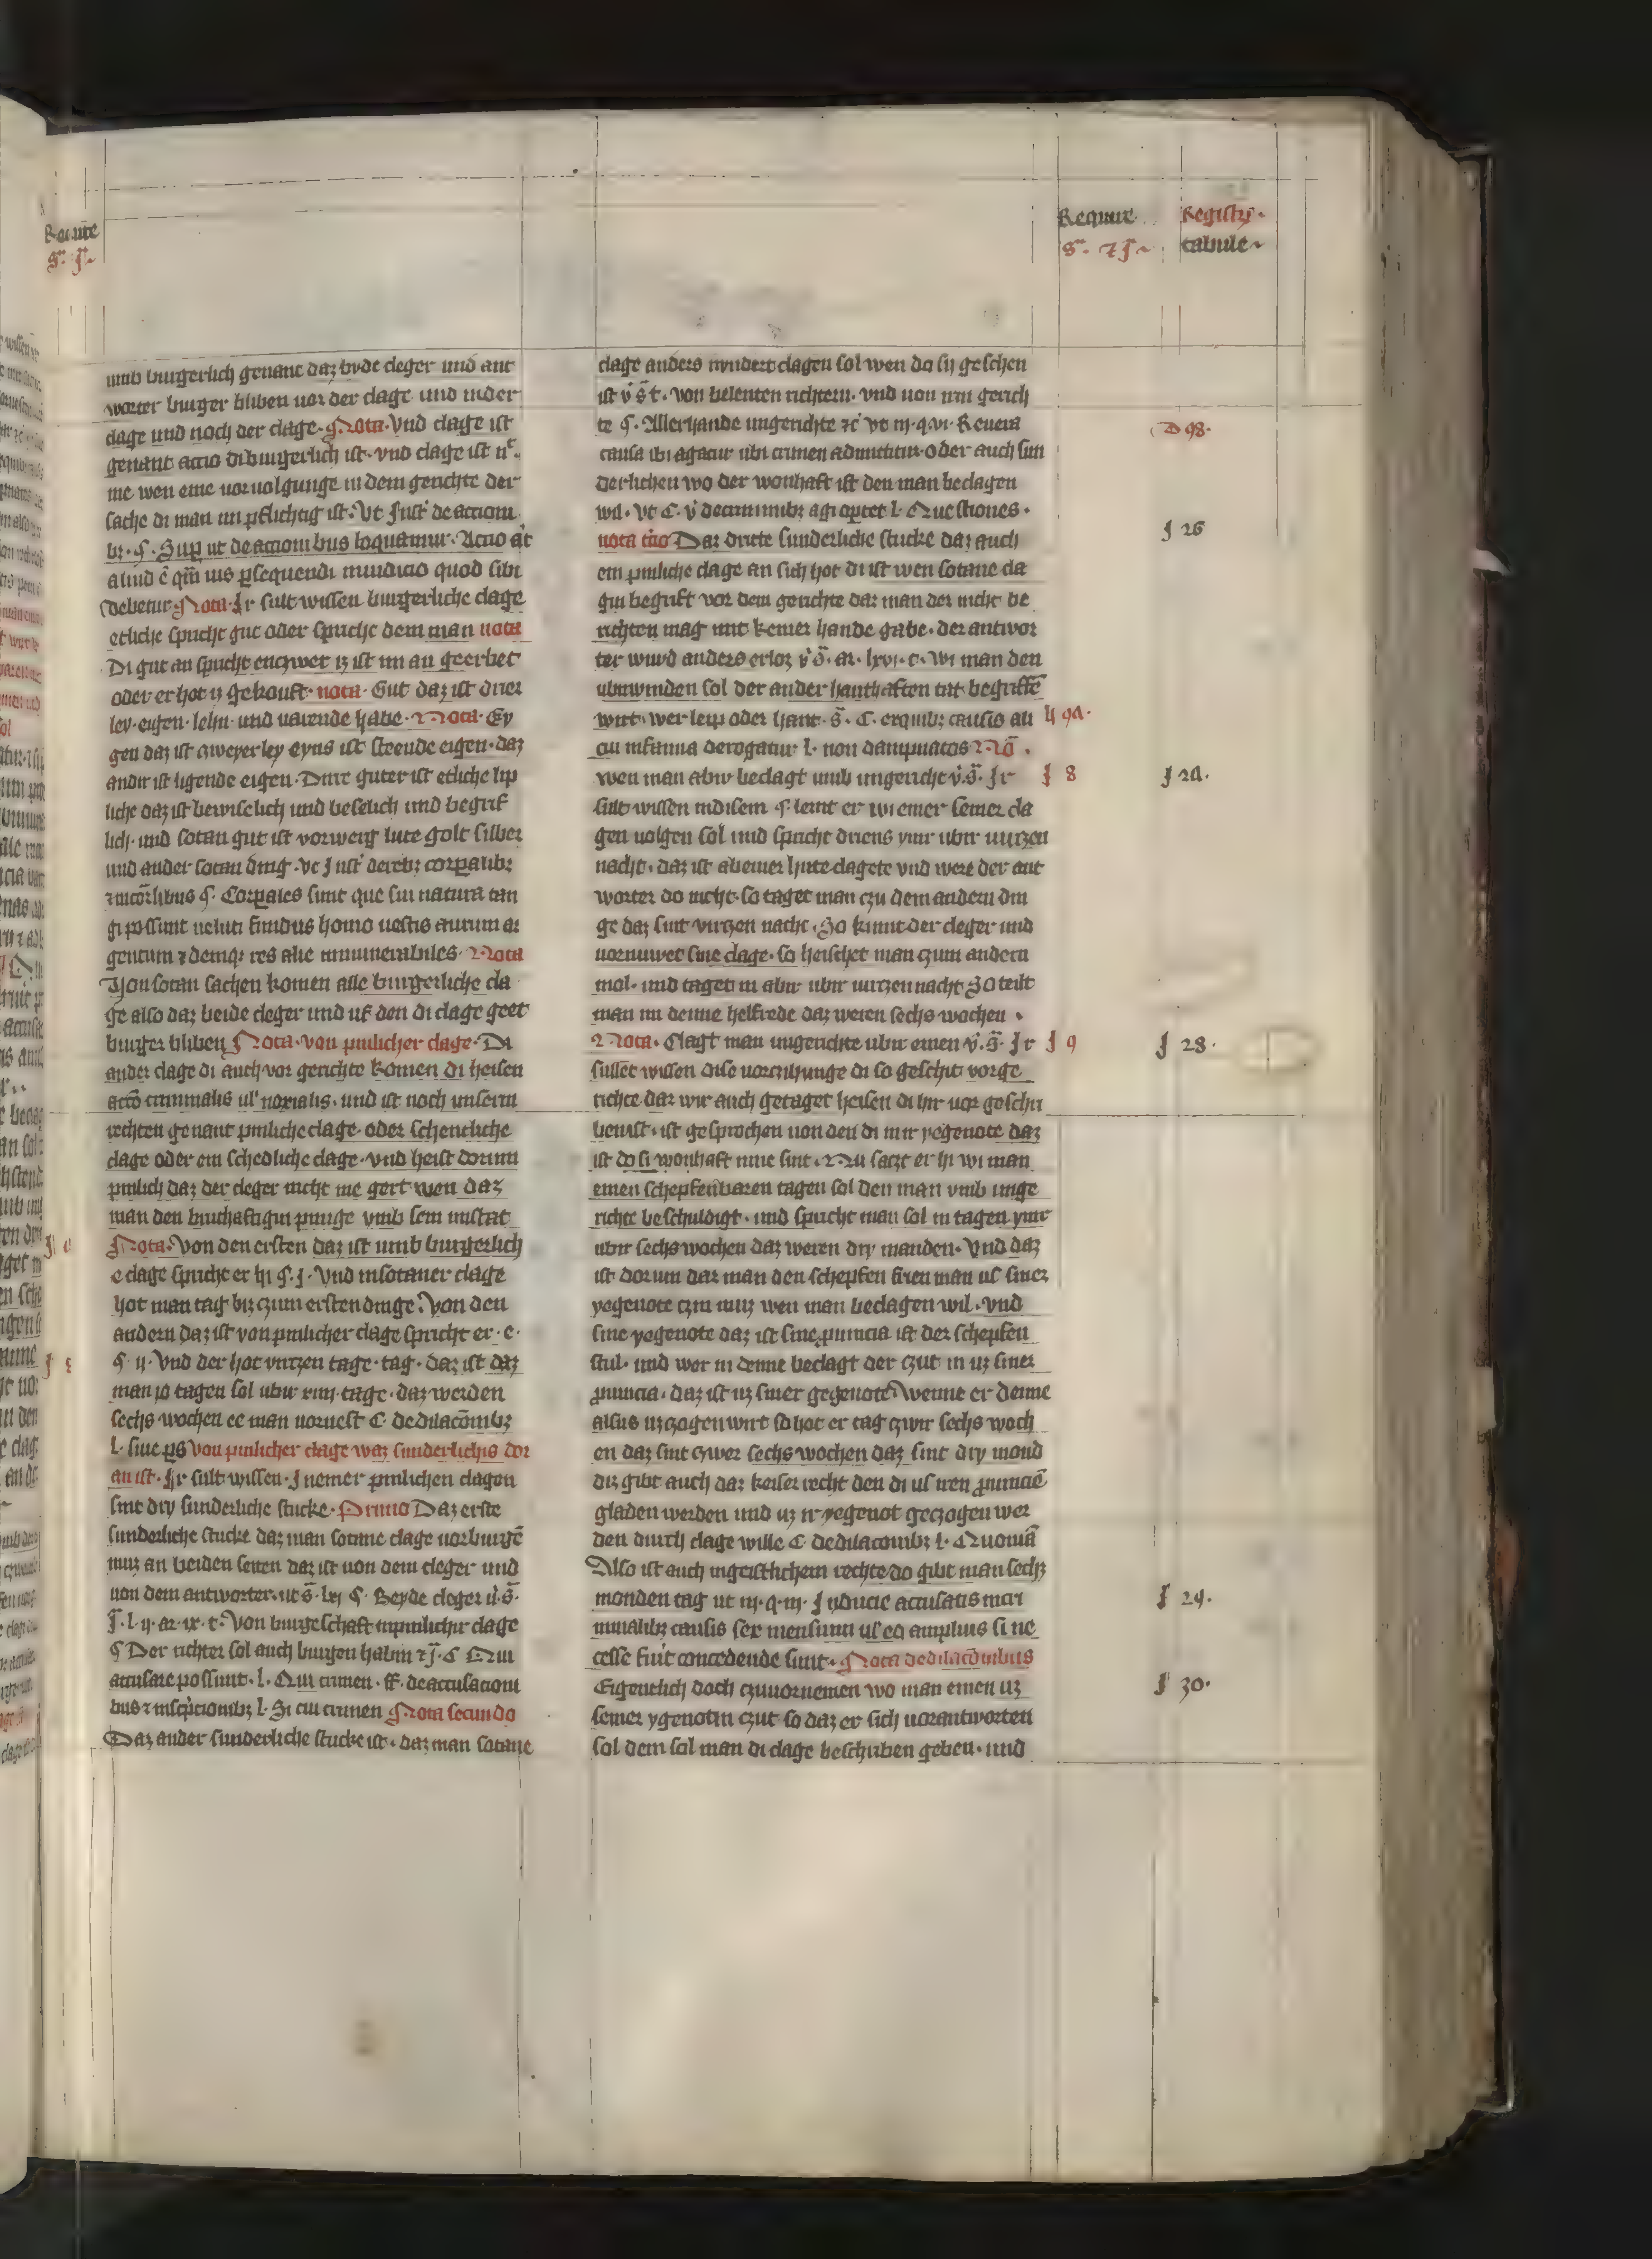 Require
Registrum
tabule
umb burgerlich genant daz byde cleger und ant
worter burger bliben vor der clage und inder
clage und noch der clage. Nota. Vnd clage ist
genant actio di burgerlich ist. vnd clage ist nc
me wen eine vorvolgunge in dem gerichte der
sache di man im pflichtig ist. Vt Inst' de action
bz. §. Sup ut de actionibus loquamur. Actio at
aliud ē qm ius psequendi in iudicio quod sibi
debetur Nota. Ir sult wissen burgerliche clage
etliche spricht gut oder spriche dem man nota
Di gut an spricht enczwer iz ist im an geerbet
oder er hot iz gekouft. nota. Gut daz ist drier
ley. eigen. lehn. und varende habe. Nota. Ey
gen daz ist czweyerley eyns ist steende eigen. daz
andir ist ligende eigen. Dirre guter ist etliche lip
liche daz ist bewiselich und beselich und begrif
lich. und sotan gut ist vorwerg lute golt silber
und ander sotan ding. vt Inst' de rebz corpalibz
⁊ incorlibus §. Corpales sunt que sui natura tan
gi possunt veluti fundus homo uestis aurum ar
gentum ⁊ deniqz res alie innumerabiles. Nota
Von sotan sachen komen alle burgerliche cla
ge also daz beide cleger und uf den di clage geet
burger bliben Nota. von pinlicher clage. Di
ander clage di auch vor gerichte komen di heisen
actio criminalis ul' noxialis. und ist noch unserm
rechten genant pinliche clage. oder schentliche
clage oder ein schedliche clage. vnd heist dorum
pinlich daz der cleger nicht me gert wen daz
man den bruchaftigin pinige vmb sein missetat
Nota. Von den ersten daz ist umb burgerlich
e clage spricht er hi §. j. Vnd in sotaner clage
hot man tag biz czum ersten dinge. Von den
andern daz ist von pinlicher clage spricht er. e.
§ ij. Vnd der hot virczen tage. tag. daz ist daz
man jo tagen sol ubir xiiij. tage. daz werden
sechs wochen ee man vorvest C. de dilacōnibz
l. siue ps von pinlicher clage waz sunderlichis dor
an ist. Ir sult wissen. In einer pinlichen clagen
sint dry sunderliche stucke. Primo Daz erste
sunderliche stucke daz man sotane clage vorburgē
muz an beiden seiten daz ist von dem cleger und
von dem antworter. ut s. lxj §. Beyde cleger
l. ij. ar. ix. c. Von burgeschaft in pinlichir clage
§ Der richter sol auch burgen habin C Qui
accusare possunt. l. Qui crimen. ff. de accusacioni
bus ⁊ inscripcionibz l. Si cui crimen Nota secundo
Daz ander sunderliche stucke ist. daz man sotane
clage anders nyndert clagen sol wen do sy geschen
ist. von belenten richtern. vnd von irm gerich
te §. Allerhande ungerichte
causa ibi agatur ubi crimen admittitur. oder auch sun
derlichen wo der wonhaft ist den man beclagen
wil. vt C. v' de criminibz agi oportet l. Questiones.
nota Daz dritte sunderliche stucke daz auch
ein pinliche clage an sich hot di ist wen sotane cla
gin begrift vor dem gerichte daz man der nicht be
richten mag mit keiner hande gabe. der antwor
ter wurd anders erloz ar. lxvi. c. Wi man den
ubirwinden sol der ander hanthaften tat begriffē
wirt. wer leip oder hant. C. ex quibz causis ali
cui infamia derogatur. l. non dampnatos Nō.
wen man abir beclagt umb ungericht Ir
sult wissen in disem §. lernt er wi einer seiner cla
gen volgen sol und spricht driens ymir ubir virczen
nacht. daz ist ab einer hute clagete vnd were der ant
worter do nicht. so taget man czu dem andern din
ge daz sint virczen nacht. So kumt der cleger und
vornuwet sine clage. so heischet man czum andern
mol. und taget in abir ubir virczen nacht So teilt
man im denne helfrede daz weren sechs wochen.
Nota. Clagt man ungerichte ubir einen Ir
sullet wissen dise vorczihunge di so geschit vorge
richte daz wir auch getaget heisen di hir vor geschri
ben ist. ist gesprochen von den di in ir yegenote daz
ist do si wonhaft inne sint. Nu saczt er hi wi man
einen schepfenbaren tagen sol den man vmb unge
richte beschuldigt. und spricht man sol in tagen ymir
ubir sechs wochen daz weren dry manden. Vnd daz
ist dorum daz man den schepfen frien man us siner
yegenote czin muz wen man beclagen wil. vnd
sine yegenote daz ist sine puincia ist der schepfen
stul. und wer in denne beclagt der czut in uz siner
puincia. daz ist uz siner gegenote Wenne er denne
alsus uzgezogen wirt so hot er tag czwir sechs woch
en daz sint czwer sechs wochen daz sint dry mond
diz gibt auch daz keiser recht den di us iren puinciē
gladen werden und uz ir yegenot geczogen wer
den durch clage wille C de dilacionibz l. Quoniā
Also ist auch in geistlichem rechte do gibt man sechz
monden tag ut iij. q. iij. Inducie accusatis in cri
minalibz causis sex mensium ul' eo amplius si ne
cesse fuit concedende sunt. Nota de dilacōnibus
Eigentlich doch czuvornemen wo man einen uz
seiner ygenotin czut so daz er sich vorantworten
sol dem sol man di clage beschriben geben. und
D 98.
J 26
J 8
J 9
J 28.
J 29.
J 30.